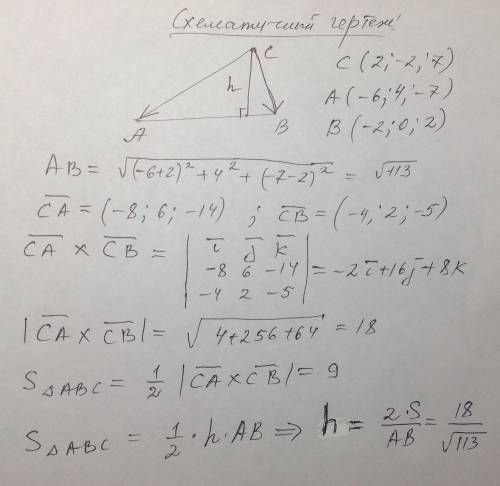 Схематичный чертеж!
C
C (2; -2; 7)
h
A (-6; 4; -7)
A
B
B (-2; 0; 2)
AB = √((-6+2)² + 4² + (-7-2)²) = √113
CA̅ = (-8; 6; -14) ; CB̅ = (-4; 2; -5)
CA̅ × CB̅ = | i̅ j̅ k̅ |
| -8 6 -14 | = -2i̅ + 16j̅ + 8k
| -4 2 -5 |
|CA̅ × CB̅| = √(4+256+64) = 18
S△ABC = 1/2 |CA̅ × CB̅| = 9
S△ABC = 1/2 · h · AB ⇒ h = 2·S/AB = 18/√113